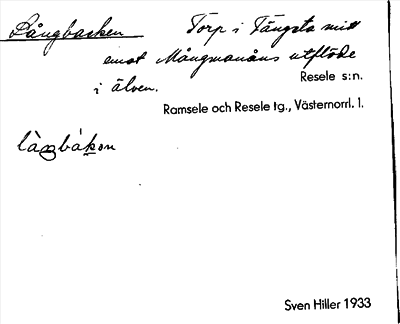 Långbacken Torp i Tängsta mitt
emot Mångmanåns utflöde
i älven. Resele s:n.
Ramsele och Resele tg., Västernorrl. l.
Sven Hiller 1933